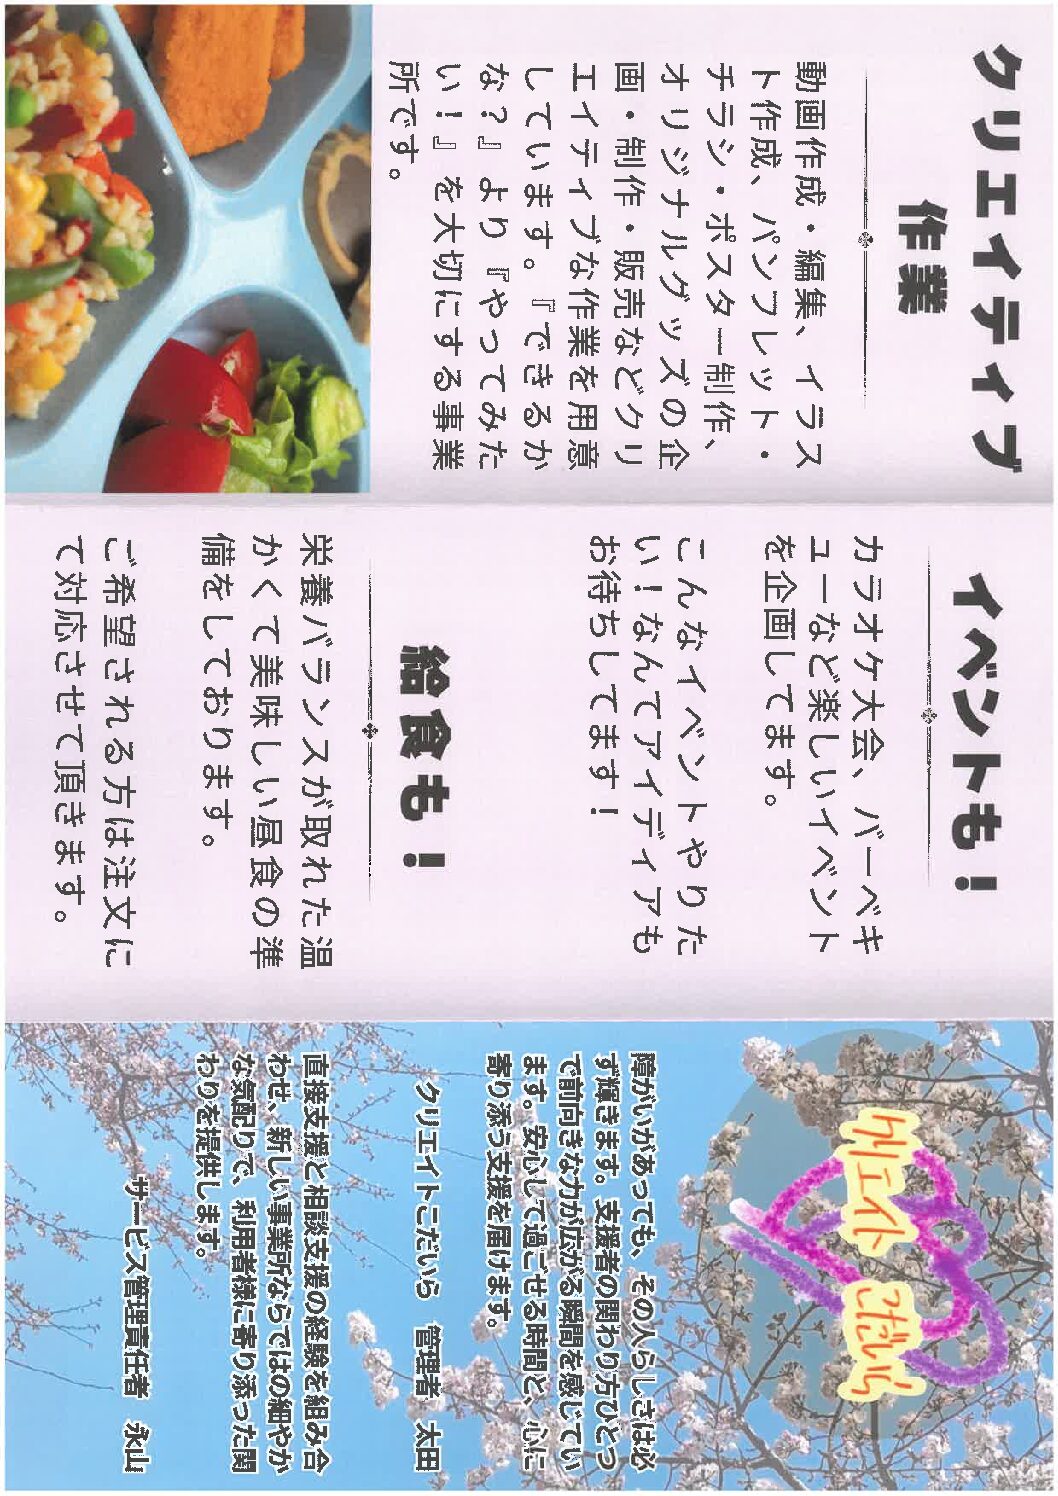 クリエイティブ
作業
動画作成・編集、イラス
ト作成、パンフレット・
チラシ・ポスター制作、
オリジナルグッズの企
画・制作・販売などクリ
エイティブな作業を用意
しています。『できるか
な？』より『やってみた
い！』を大切にする事業
所です。
イベントも！
カラオケ大会、バーベキ
ューなど楽しいイベント
を企画してます。
こんなイベントやりた
い！なんてアイディアも
お待ちしてます！
給食も！
栄養バランスが取れた温
かくて美味しい昼食の準
備をしております。
ご希望される方は注文に
て対応させて頂きます。
クリエイト こだいら
障がいがあっても、その人らしさは必
ず輝きます。支援者の関わり方ひとつ
で前向きな力が広がる瞬間を感じてい
ます。安心して過ごせる時間と、心に
寄り添う支援を届けます。
クリエイトこだいら 管理者 太田
直接支援と相談支援の経験を組み合
わせ、新しい事業所ならではの細やか
な気配りで、利用者様に寄り添った関
わりを提供します。
サービス管理責任者 永山